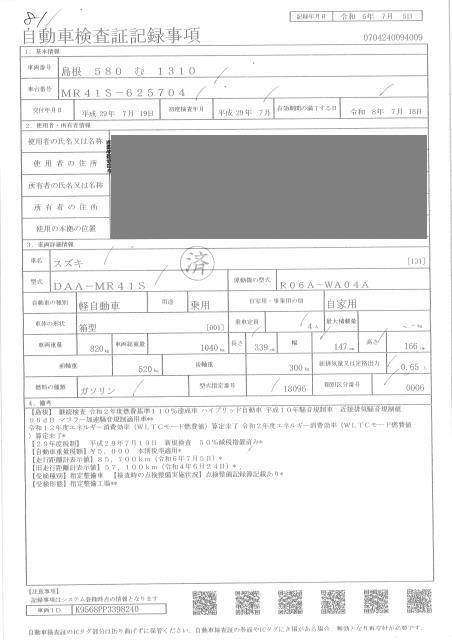 81
記録年月日 令和 6年 7月 5日
自動車検査証記録事項
0704240094009
1．基本情報
車両番号 島根 580 む 1310
車台番号 MR41S-625704
交付年月日 平成 29年 7月 19日 初度検査年月 平成 29年 7月 有効期間の満了する日 令和 8年 7月 18日
2．使用者・所有者情報
使用者の氏名又は名称
使用者の住所
所有者の氏名又は名称
所有者の住所
使用の本拠の位置
3．車両詳細情報
車名 スズキ [131]
済
型式 DAA-MR41S 原動機の型式 R06A-WA04A
自動車の種別 軽自動車 用途 乗用 自家用・事業用の別 自家用
車体の形状 箱型 [001] 乗車定員 4人 最大積載量 - - kg
車両重量 820kg 車両総重量 1040kg 長さ 339cm 幅 147cm 高さ 166cm
前軸重 520kg 後軸重 300kg 総排気量又は定格出力 0.65
燃料の種類 ガソリン 型式指定番号 18096 類別区分番号 0006
4．備考
【島根】 継続検査 令和2年度燃費基準110%達成車 ハイブリッド自動車 平成10年騒音規制車 近接排気騒音規制値
96dB マフラー加速騒音規制適用車**
令和12年度エネルギー消費効率(WLTCモード燃費値)算定未了 令和2年度エネルギー消費効率(WLTCモード燃費値
)算定未了*
【29年度税制】 平成29年7月19日 新規検査 50%減税措置済み*
【自動車重量税額】¥5,000 本則税率適用*
【走行距離計表示値】85,700km(令和6年7月5日)*
【旧走行距離計表示値】57,100km(令和4年6月24日)*
【受検種別】指定整備車 【検査時の点検整備実施状況】点検整備記録簿記載あり*
【受検形態】指定整備工場**
【注意事項】
記録事項はシステム登録時点の情報となります
車両ID K9568PP3398240
自動車検査証のICタグ部分は折り曲げずに保管ください。自動車検査証の券面やICタグに欠損がある場合、無効となり再交付が必要です。